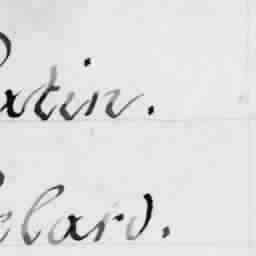 atin.
elard.